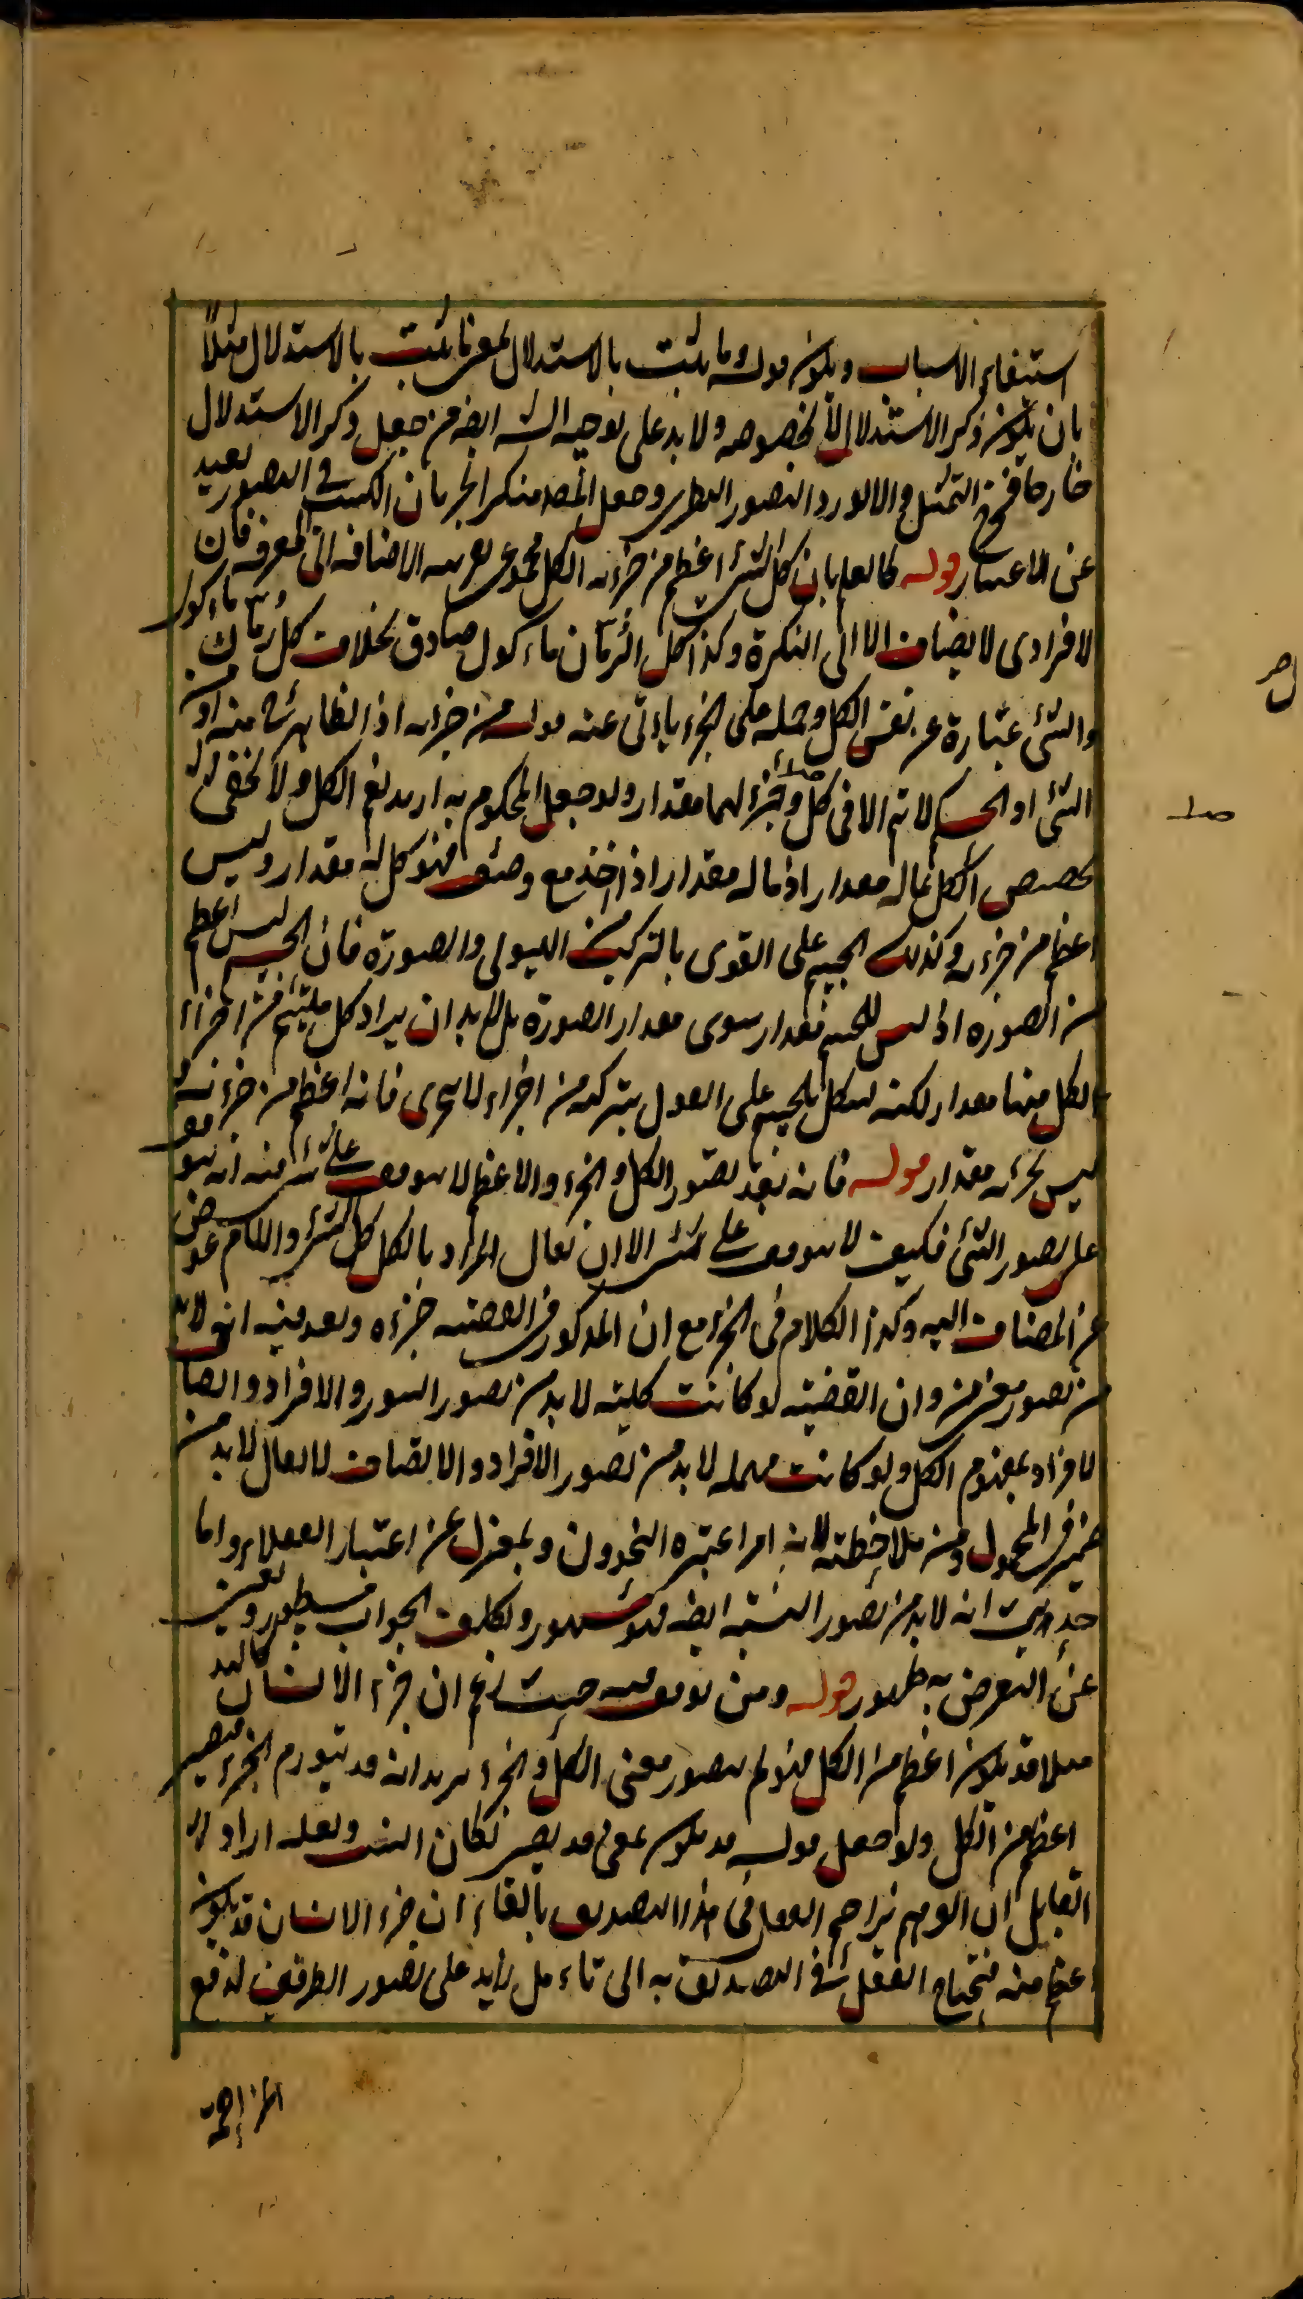 استيفاء الاسباب ويكون قوله ما يثبت بالاستدلال بمعنى ما يثبت بالاستدلال مثلا
بان يكون ذكر الاستدلال لا لخصوصه ولا بد على توجيه الش ايضه من جعل ذكر الاستدلال
خارجا مخرج التمثيل والا لورد التصور النظرى وجعل المصه منكرا لجريان الكسب فى التصور بعيد
عن الاعتبار قوله كالعلم بان كل الشئ اعظم من جزئه الكل مجموعى بقرينة الاضافه الى المعرفه فان
الافرادى لا يضاف الا الى النكرة وكذا كل الرمان ماءكول صادق بخلاف كل رمان ماءكول
والشئ عبارة عن نفس الكل وحمله على الجزء ياءبى عنه قوله من جزئه اذ الظاهر ح منه او من
الشئ او الحكم لا يتم الا فى كل وجزء لهما مقدار ولو جعل المحكوم به ازيد لعم الكل ولا يخفى ان
تخصيص الكل بما له مقدار اذ ما له مقدار اذا اخذ مع وصف فهو كل له مقدار وليس
اعظم من جزءه وكذلك الجسم على القوى بالتركب من الهيولى والصورة فان الجسم ليس اعظم
من الصوره اذ ليس للجسم مقدار سوى مقدار الصورة بل لا بد ان يراد كل ملتئم من اجزاء
لكل منها مقدار لكنه يشكل بالجسم على القول بتركبه من اجزاء لا تتجزى فانه اعظم من جزءه مع انه
ليس لجزئه مقدار قوله فانه بعد تصور الكل والجزء والاعظم لا يتوقف على شئ منه انه يتوقف
على تصور الشئ فكيف لا يتوقف على شئ الا ان يقال المراد بالكل كل الشئ واللام عوض
عن المضاف اليه وكذا الكلام فى الجزء مع ان المذكور فى القضيه جزءه وبعد فيه انه لا بد
من تصور معنى من وان القضيه لو كانت كليه لا بد من تصور السور والافراد واتصاف
الافراد بمفهوم الكل ولو كانت مهمله لا بد من تصور الافراد والاتصاف لا يقال لا بد من
ضمير فى المحمول ومن ملاحظته لانه امر اعتبره النحويون وبمعزل عن اعتبار العقلاء واما
حديث انه لا بد من تصور النسبه ايضه فهو مشهور وتكلف الجواب مسطور ويغنيك
عن التعرض به ظهور قوله ومن توقف فيه حيث زعم ان جزء الانسان كاليد
مثلا قد يكون اعظم من الكل فهو لم يتصور معنى الكل والجزء يريد انه قد يتورم الجزء فيصير
اعظم من الكل ولو جعل قوله قد يكون بمعنى قد يصير لكان انسب ولعله اراد ان
القايل ان الوهم يزاحم العقل فى هذا التصديق بالقاء ان جزء الانسان قد يكون
اعظم منه فيحتاج العقل فى التصديق به الى تاءمل زايد على تصور الطرفين لدفع